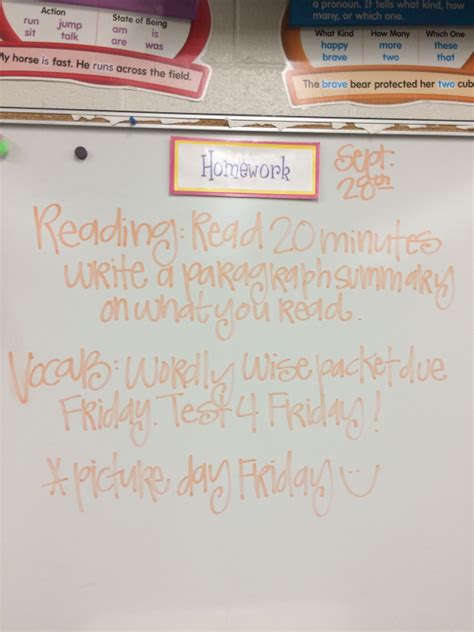 Action
State of Being
run jump
am is
sit talk
are was
My horse is fast. He runs across the field.
a pronoun. It tells what kind, how
many, or which one.
What Kind
How Many
Which One
happy
more
these
brave
two
that
The brave bear protected her two cubs
Homework
Sept.
28th
Reading: Read 20 minutes
write a paragraph summary
on what you read.
Vocab: Wordly Wise packet due
Friday. Test 4 Friday!
*picture day Friday